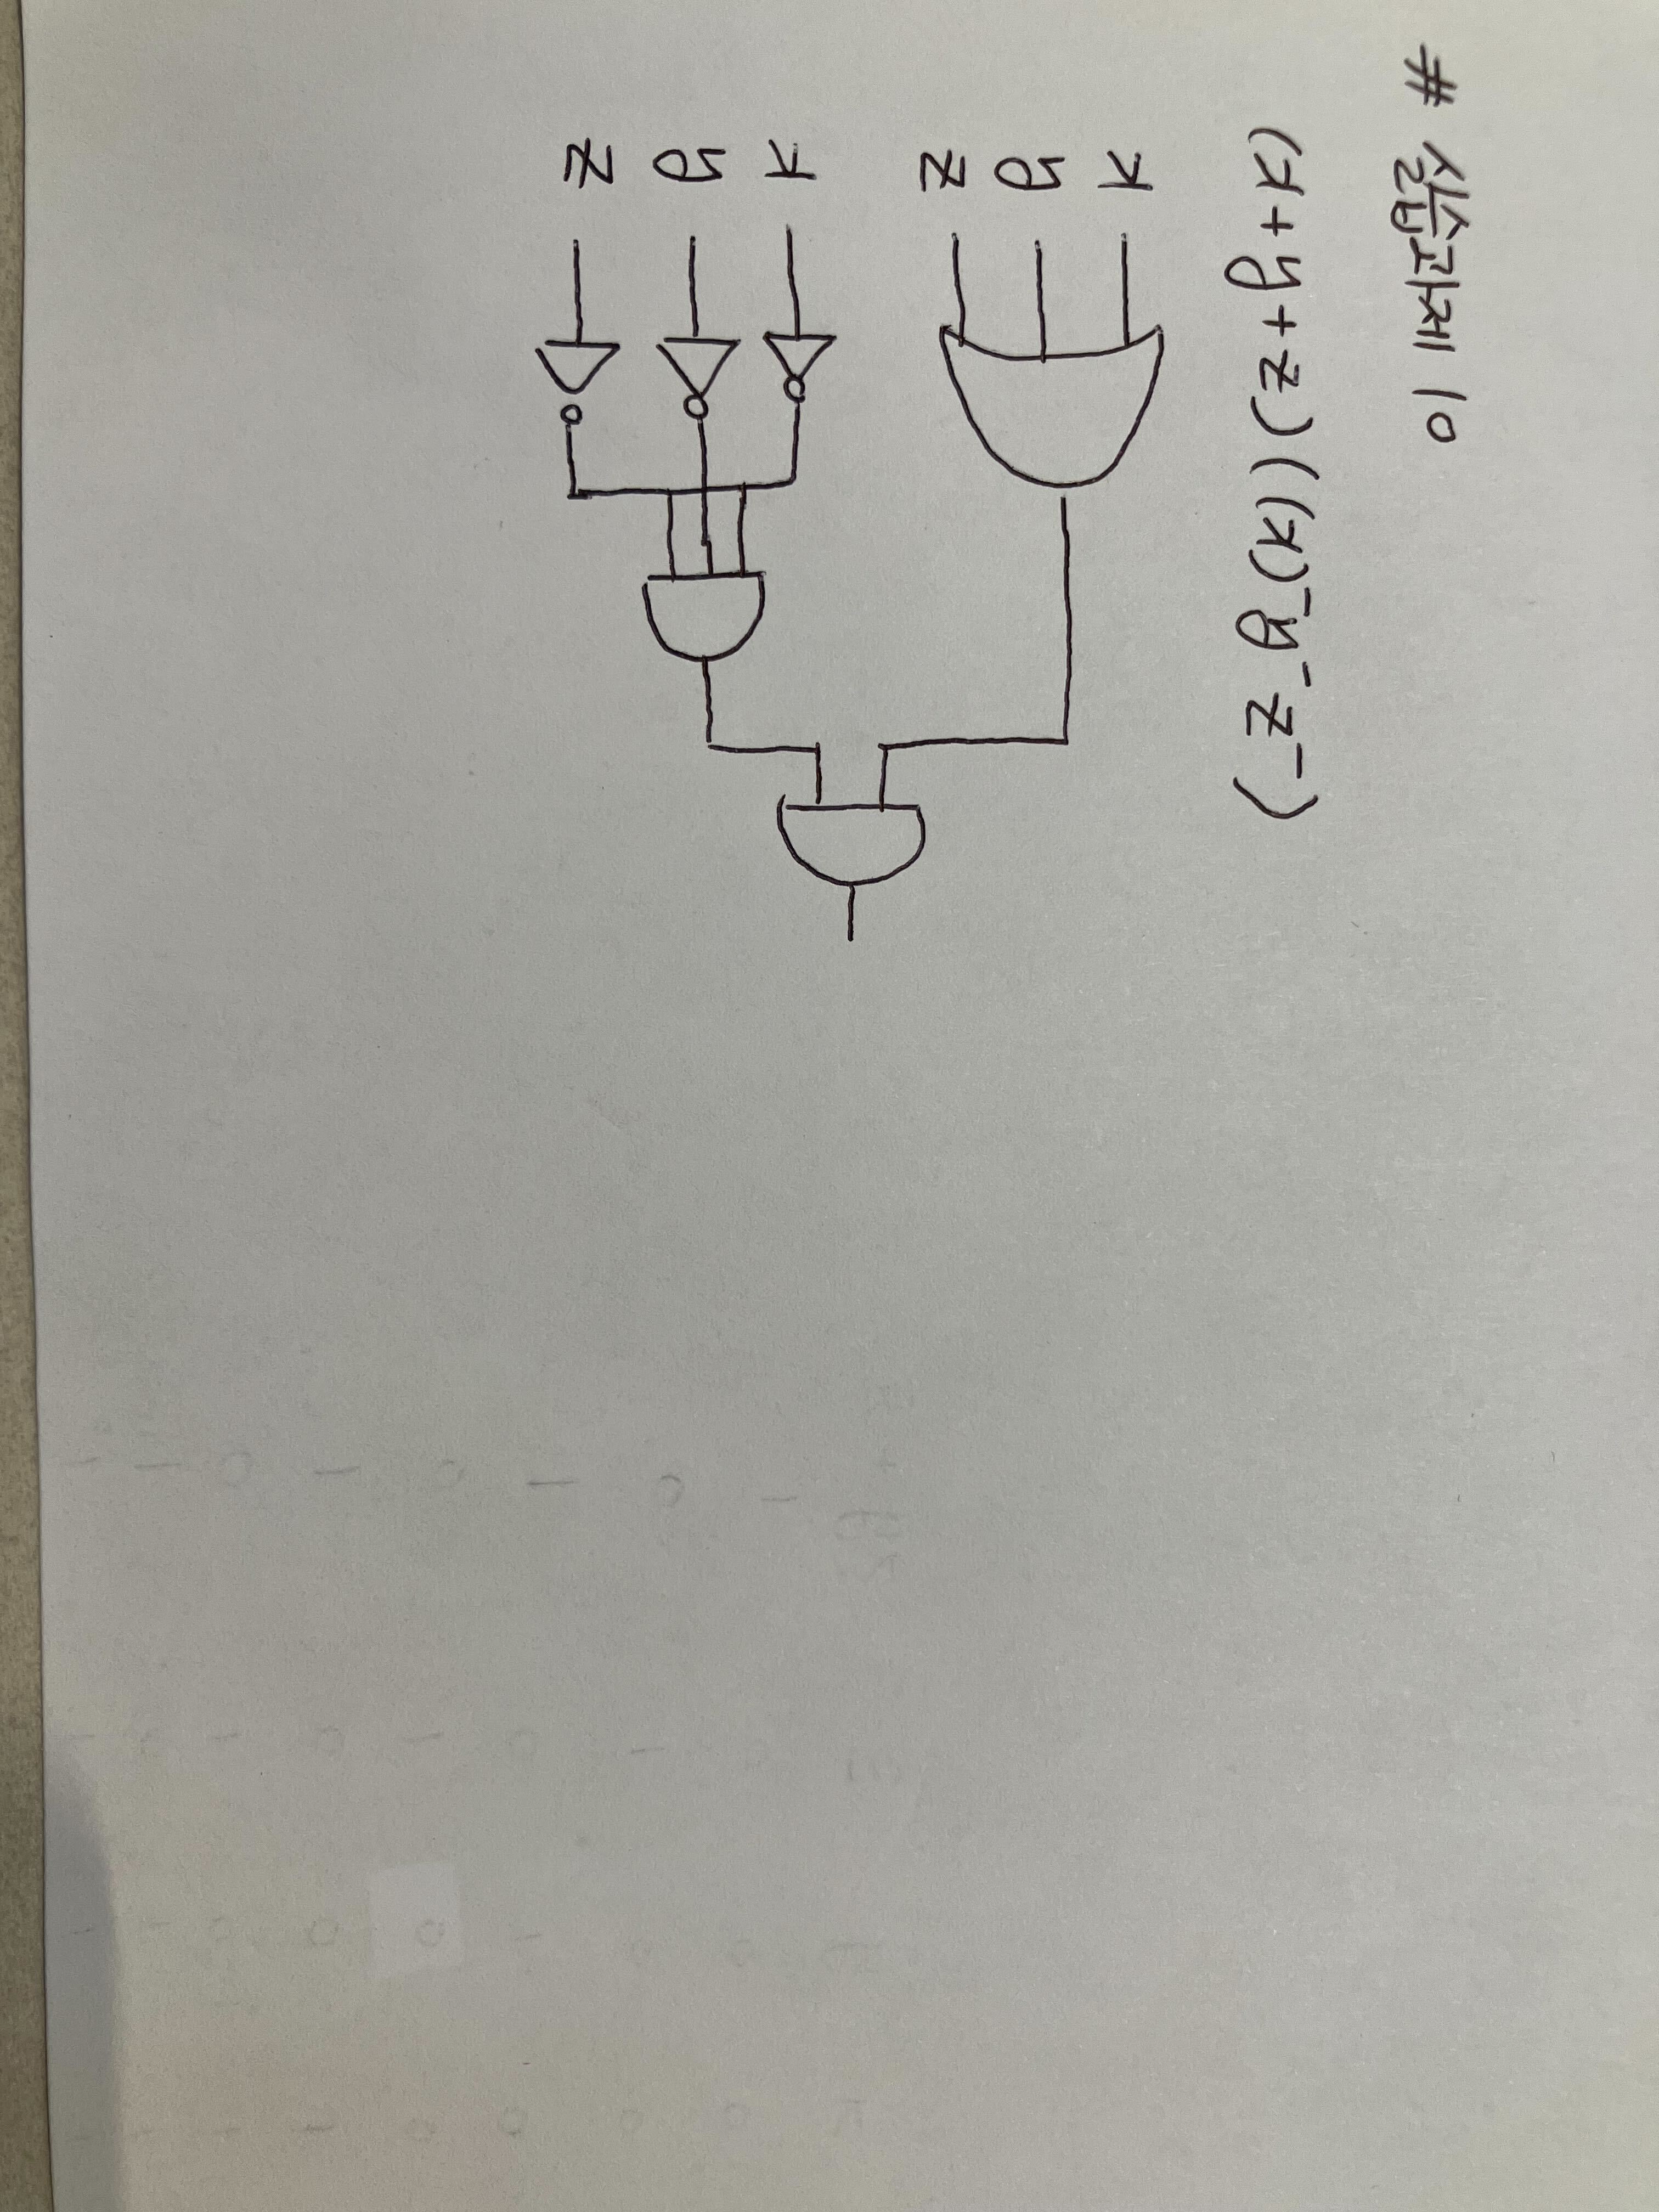 # 실습과제 10
(x+y+z)((x)⁻y⁻z⁻)
x
y
z
x
y
z